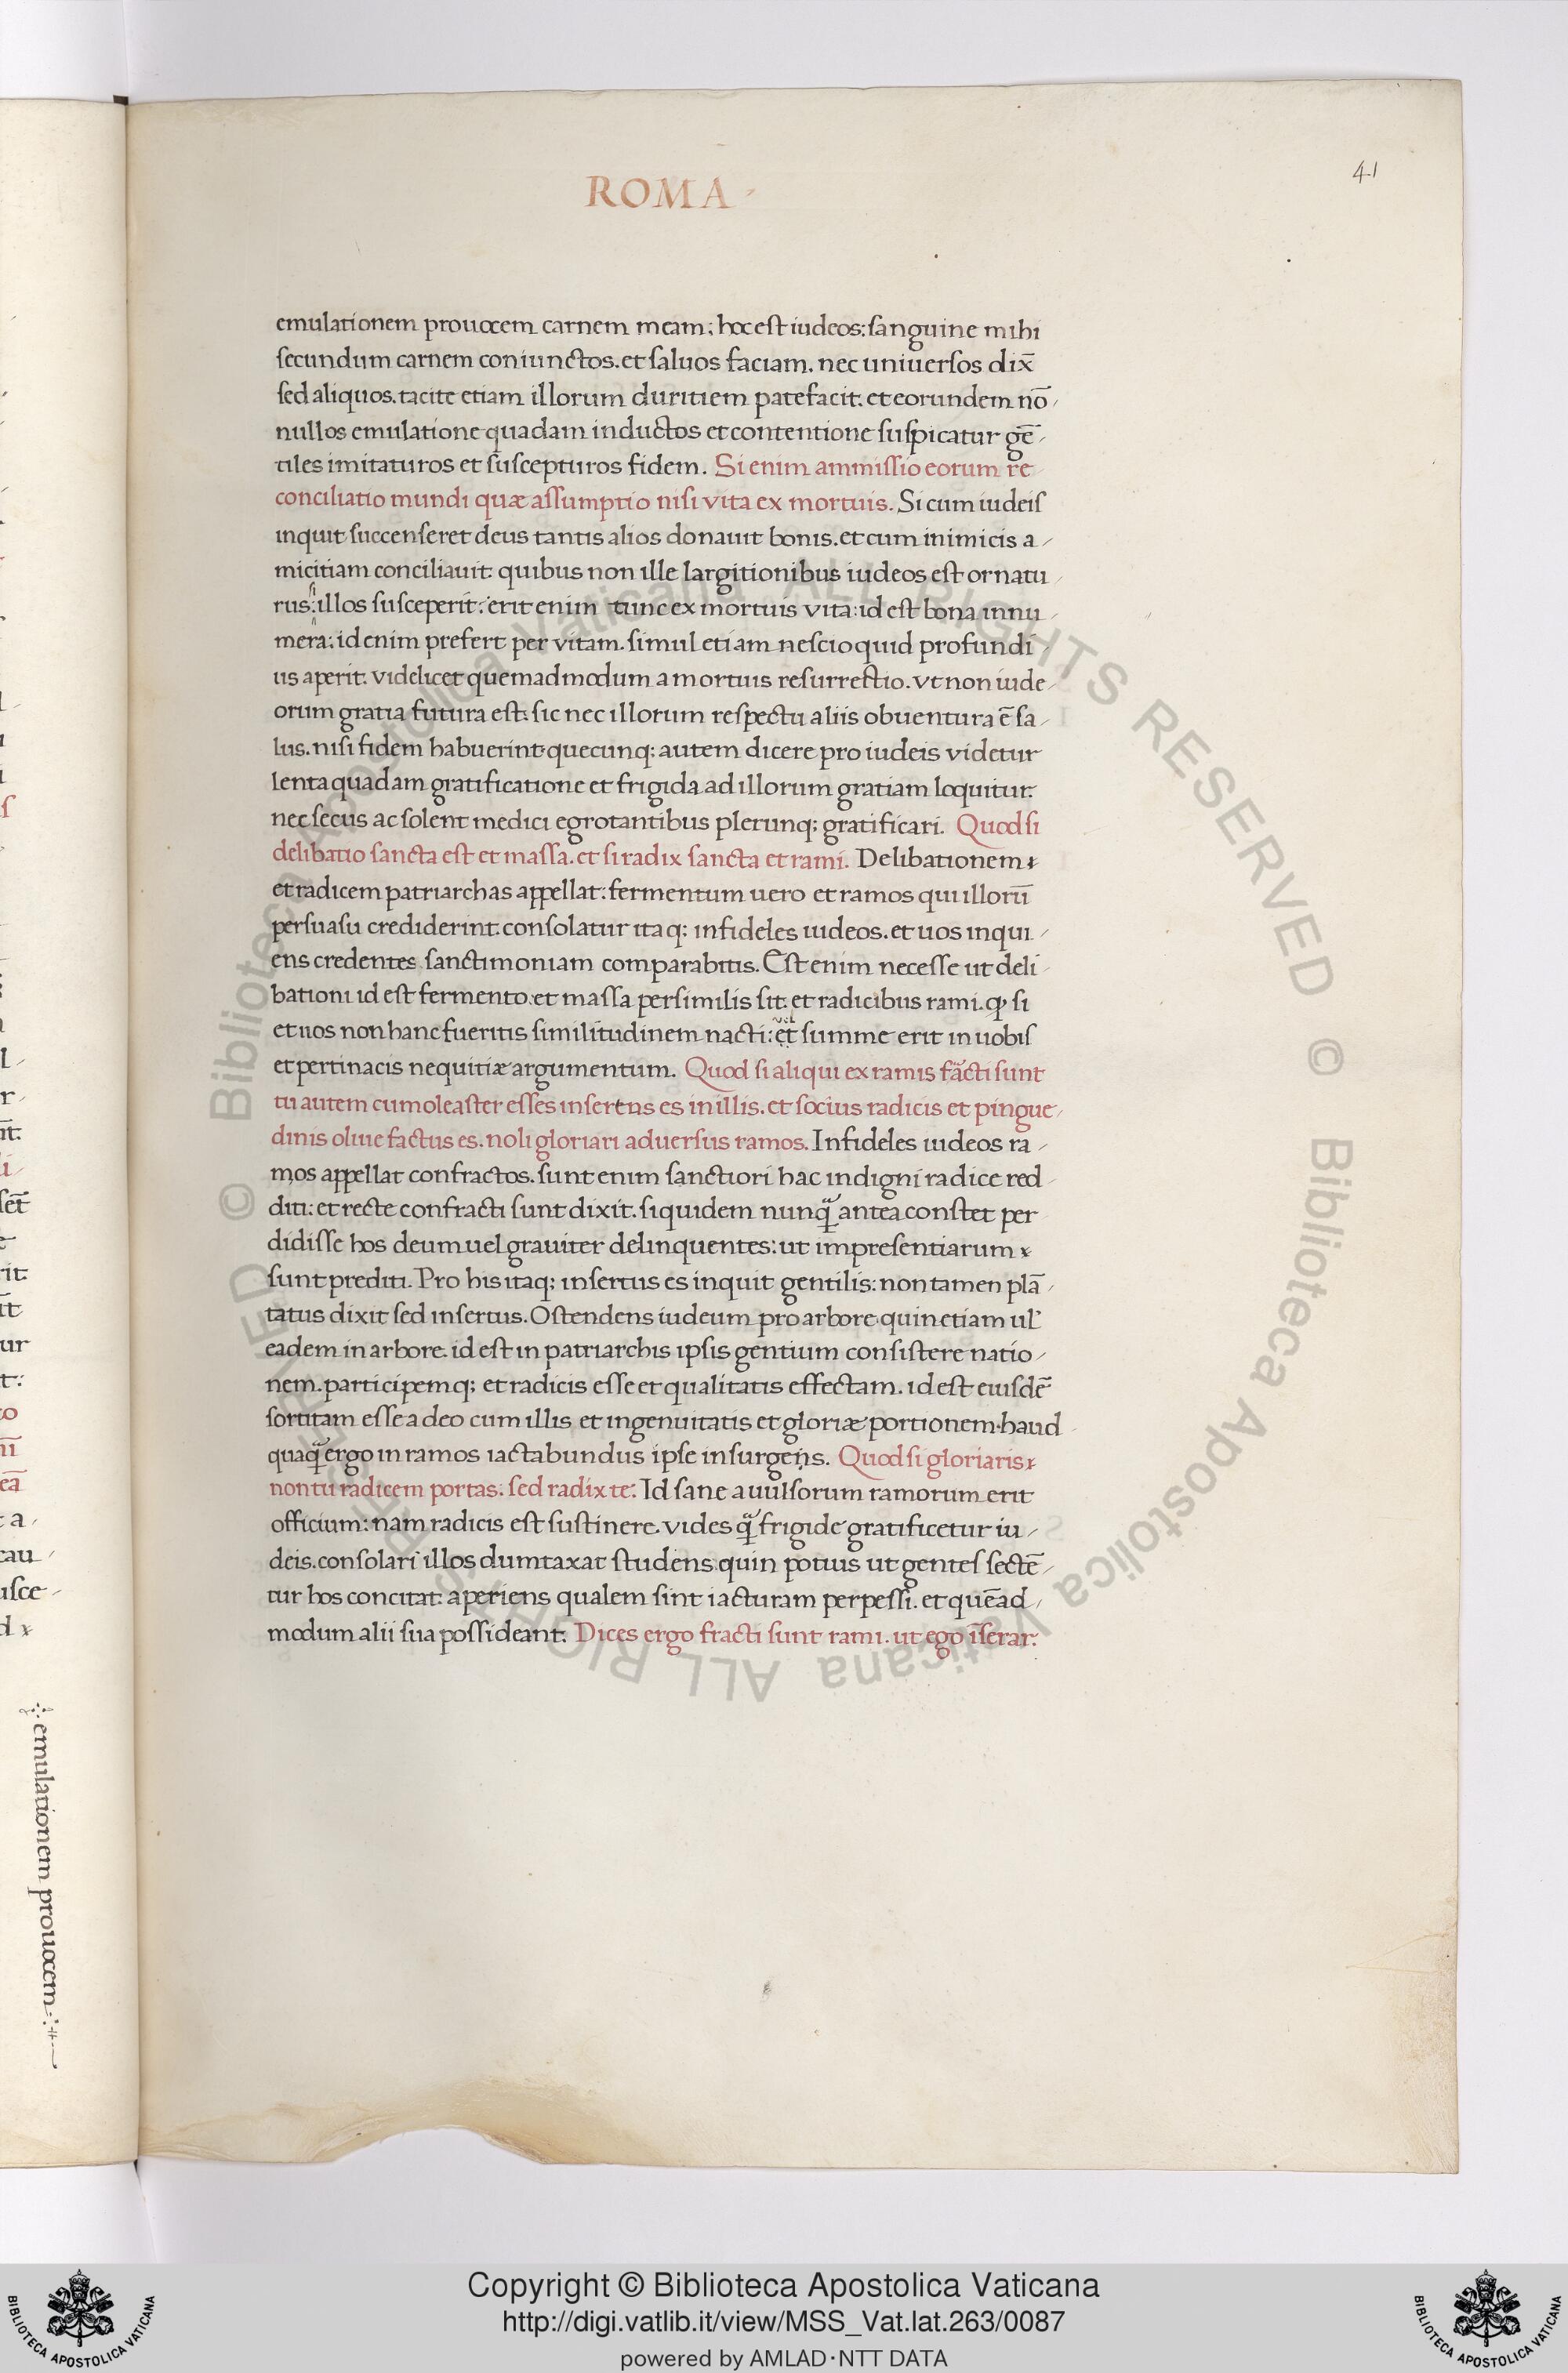 ROMA
41
emulationem prouocem carnem meam; hoc est iudeos: sanguine mihi
secundum carnem coniunctos. et saluos faciam. nec uniuersos dix̄
sed aliquos. tacite etiam illorum duritiem patefacit. et eorundem nō
nullos emulatione quadam inductos et contentione suspicatur gē
tiles imitaturos et suscepturos fidem. Si enim ammissio eorum re
conciliatio mundi quæ assumptio nisi vita ex mortuis. Si cum iudeis
inquit succenseret deus tantis alios donauit bonis. et cum inimicis a
micitiam conciliauit: quibus non ille largitionibus iudeos est ornatu
rus: si illos susceperit: erit enim tunc ex mortuis vita: id est bona innu
mera; id enim prefert per vitam. simul etiam nescio quid profundi
us aperit. videlicet quemadmodum a mortuis resurrectio. vt non iude
orum gratia futura est: sic nec illorum respectu aliis obuentura ē sa
lus. nisi fidem habuerint. quecunq; autem dicere pro iudeis videtur
lenta quadam gratificatione et frigida ad illorum gratiam loquitur.
nec secus ac solent medici egrotantibus plerunq; gratificari. Quod si
delibatio sancta est et massa. et si radix sancta et rami. Delibationem
et radicem patriarchas appellat: fermentum uero et ramos qui illorū
persuasu crediderint. consolatur itaq; infideles iudeos. et uos inqui
ens credentes sanctimoniam comparabitis. Est enim necesse ut deli
bationi id est fermento. et massa persimilis sit. et radicibus rami. ꝙ si
et uos non hanc fueritis similitudinem nacti: et summe erit in uobis
et pertinacis nequitiæ argumentum. Quod si aliqui ex ramis fracti sunt
tu autem cum oleaster esses insertus es in illis. et socius radicis et pingue
dinis oliue factus es. noli gloriari aduersus ramos. Infideles iudeos ra
mos appellat confractos. sunt enim sanctiori hac indigni radice red
diti: et recte confracti sunt dixit. siquidem nunꝗ̃ antea constet per
didisse hos deum uel grauiter delinquentes: ut impresentiarum
sunt prediti. Pro his itaq; insertus es inquit gentilis: non tamen plā
tatus dixit sed insertus. Ostendens iudeum pro arbore. quin etiam ul'
eadem in arbore. id est in patriarchis ipsis gentium consistere natio
nem. participemq; et radicis esse et qualitatis effectam. id est eiusdē
sortitam esse adeo cum illis et ingenuitatis et gloriæ portionem. haud
quaꝗ̃ ergo in ramos iactabundus ipse insurgens. Quod si gloriaris
non tu radicem portas: sed radix te: Id sane auulsorum ramorum erit
officium: nam radicis est sustinere. vides ꝗ̃ frigide gratificetur iu
deis. consolari illos dumtaxat studens. quin potius ut gentes sectē
tur hos concitat: aperiens qualem sint iacturam perpessi. et quēad
modum alii sua possideant. Dices ergo fracti sunt rami. ut ego īserar.
emulationem prouocem
© Biblioteca Apostolica Vaticana ALL RIGHTS RESERVED © Biblioteca Apostolica Vaticana ALL RIGHTS RESERVED
Copyright © Biblioteca Apostolica Vaticana
http://digi.vatlib.it/view/MSS_Vat.lat.263/0087
powered by AMLAD·NTT DATA
BIBLIOTECA APOSTOLICA VATICANA
BIBLIOTECA APOSTOLICA VATICANA